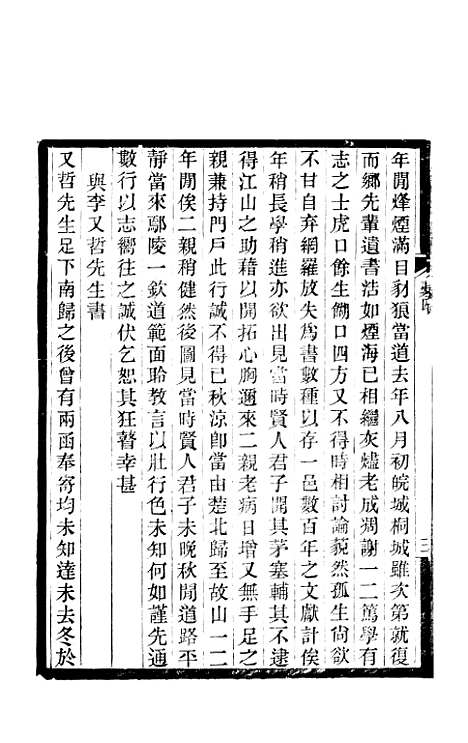 年閒烽煙滿目豺狼當道去年八月初皖城桐城雖次第就復
而鄉先輩遺書浩如煙海已相繼灰燼老成凋謝一二篤學有
志之士虎口餘生餬口四方又不得時相討論藐然孤生尙欲
不甘自弃網羅放失爲書數種以存一邑數百年之文獻計俟
年稍長學稍進亦欲出見當時賢人君子開其茅塞輔其不逮
得江山之助藉以開拓心胸邇來二親老病日增又無手足之
親兼持門戶此行誠不得已秋涼卽當由楚北歸至故山一二
年閒俟二親稍健然後圖見當時賢人君子未晚秋閒道路平
靜當來鄢陵一欽道範面聆敎言以壯行色未知何如謹先通
數行以志嚮往之誠伏乞恕其狂瞽幸甚
與李又哲先生書
又哲先生足下南歸之後曾有兩函奉寄均未知達未去冬於
三